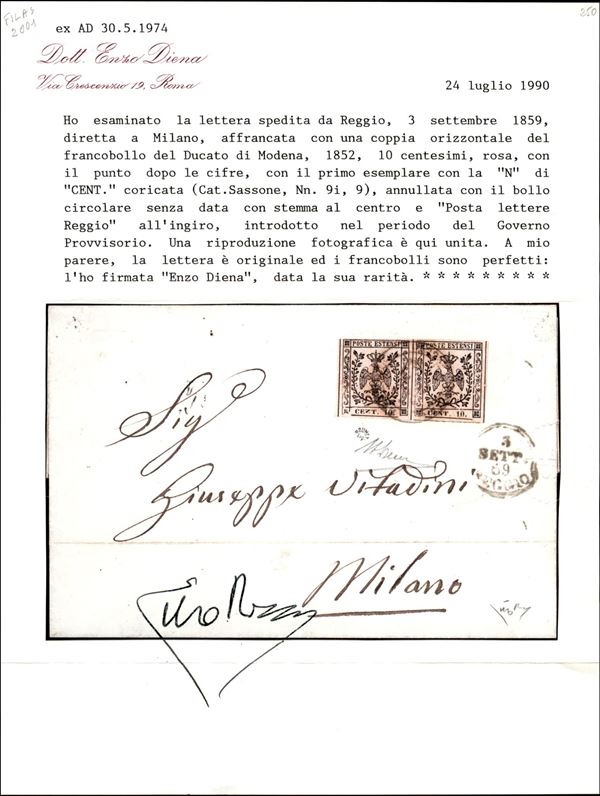 FILAS
2001
250
ex AD 30.5.1974
Dott. Enzo Diena
Via Crescenzio 19, Roma
24 luglio 1990
Ho esaminato la lettera spedita da Reggio, 3 settembre 1859,
diretta a Milano, affrancata con una coppia orizzontale del
francobollo del Ducato di Modena, 1852, 10 centesimi, rosa, con
il punto dopo le cifre, con il primo esemplare con la "N" di
"CENT." coricata (Cat.Sassone, Nn. 9i, 9), annullata con il bollo
circolare senza data con stemma al centro e "Posta lettere
Reggio" all'ingiro, introdotto nel periodo del Governo
Provvisorio. Una riproduzione fotografica è qui unita. A mio
parere, la lettera è originale ed i francobolli sono perfetti:
l'ho firmata "Enzo Diena", data la sua rarità. * * * * * * * * *
POSTE ESTENSI POSTE ESTENSI
CEZT. 10. CENT. 10.
Sigr
3
SETT.
59
REGGIO
Giuseppe Vitadini
Milano